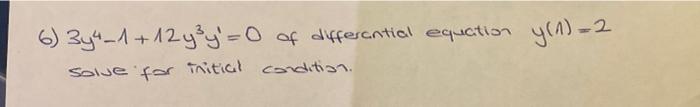 6) 3y⁴-1+12y³y'=0 of differential equation y(1)=2
Solve for initial condition.